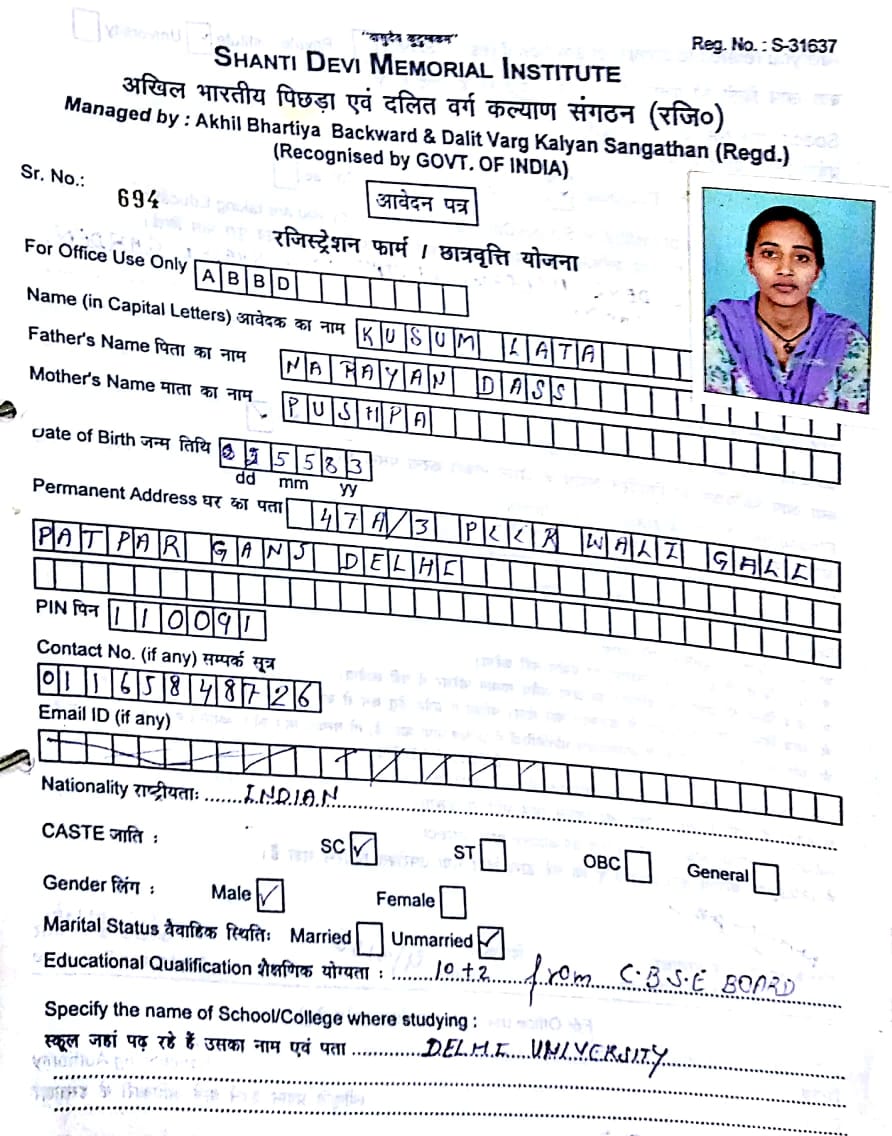 "वासुदेव कुटुम्बकम"
Reg. No. : S-31637
SHANTI DEVI MEMORIAL INSTITUTE
अखिल भारतीय पिछड़ा एवं दलित वर्ग कल्याण संगठन (रजि०)
Managed by : Akhil Bhartiya Backward & Dalit Varg Kalyan Sangathan (Regd.)
(Recognised by GOVT. OF INDIA)
Sr. No.: 694
आवेदन पत्र
रजिस्ट्रेशन फार्म / छात्रवृत्ति योजना
For Office Use Only ABBD
Name (in Capital Letters) आवेदक का नाम KUSUM LATA
Father's Name पिता का नाम NARAYAN DASS
Mother's Name माता का नाम PUSHPA
Date of Birth जन्म तिथि 5583
dd mm yy
Permanent Address घर का पता 47A/3 WALI GALI
PATPAR GANJ DELHI
PIN पिन 110091
Contact No. (if any) सम्पर्क सूत्र
01165848726
Email ID (if any)
Nationality राष्ट्रीयताः ........INDIAN
CASTE जाति : SC ✓ ST OBC General
Gender लिंग : Male ✓ Female
Marital Status वैवाहिक स्थितिः Married Unmarried ✓
Educational Qualification शैक्षणिक योग्यता : ........10+2 from C.B.S.E BOARD
Specify the name of School/College where studying :
स्कूल जहां पढ़ रहे हैं उसका नाम एवं पता ..............DELHI UNIVERSITY